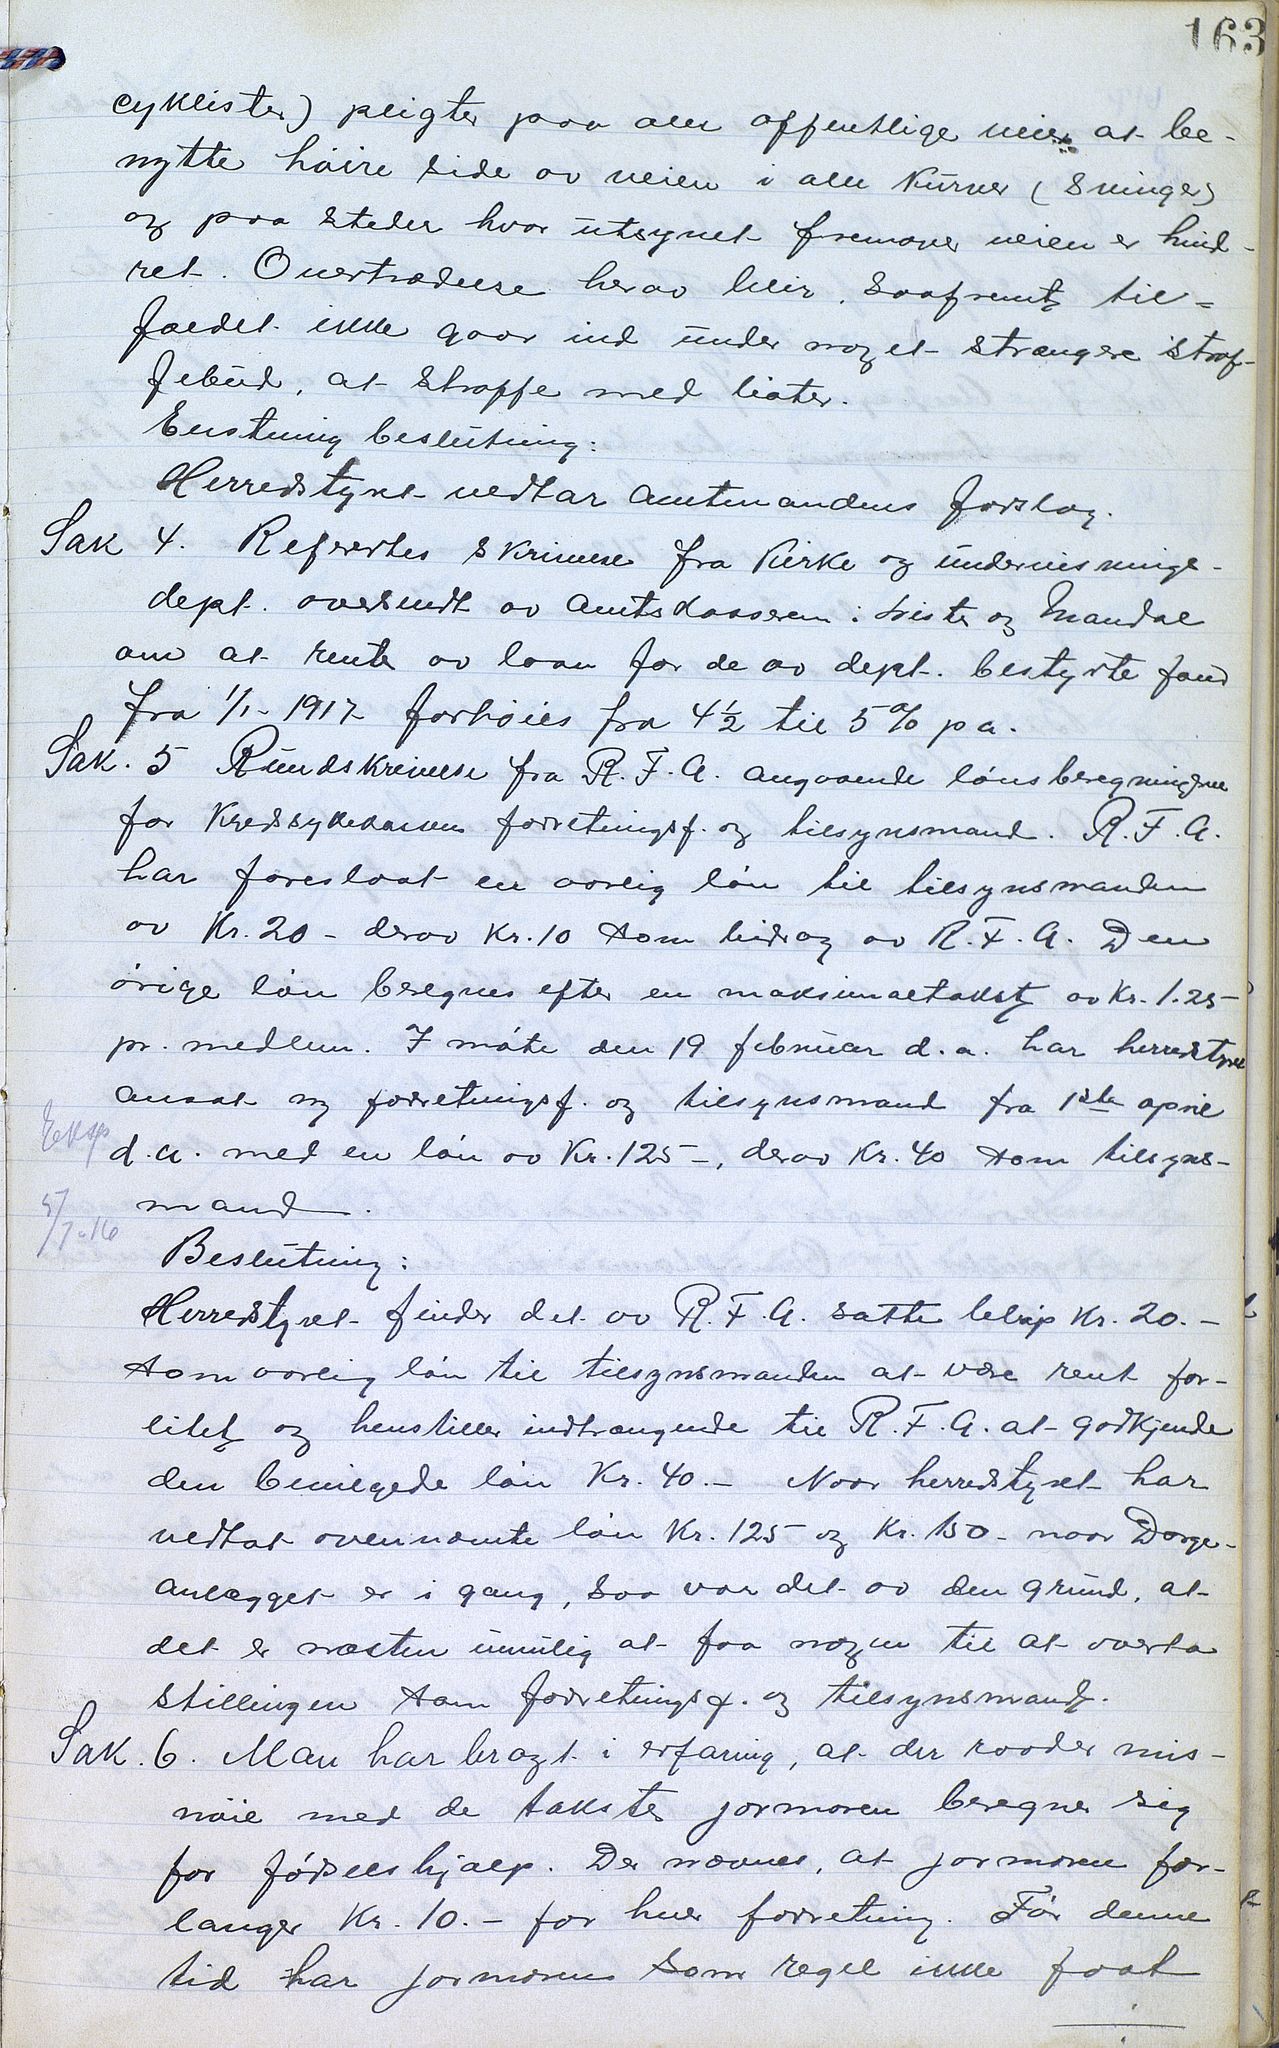 163
cyklister) pligter paa alle offentlige veier at be-
nytte høire side av veien i alle kurver (svinger)
og paa steder hvor utsynet fremover veien er hind-
ret. Overtrædelse herav blir, saafremt til-
fældet ikke gaar ind under noget strængere straf-
febud, at straffe med bøter.
Enstemig beslutning:
Herredstyret vedtar amtmandens forslag.
Sak 4. Refertes skrivelse fra Kirke og undervisnings-
dept. oversendt av amtskassereren i Lister og Mandal
om at renter av laan for de av dept. bestyrte fond
fra 1/1- 1917 forhøies fra 4½ til 5% pa.
Sak. 5 Rundskrivelse fra R.F.A. angaaende lønsberegningen
for kredssykekassens forretningsf. og tilsynsmand. R.F.A.
har foreslaat en aarlig løn til tilsynsmanden
av Kr. 20 - derav Kr. 10 som bidrag av R.F.A. Den
øvrige løn beregnes efter en maksimaltakst av Kr. 1.25-
pr. medlem. I møte den 19 februar d.a. har herredstyret
ansat ny forretningsf. og tilsynsmand fra 1ste april
Eksp
d.a. med en løn av Kr. 125-, derav Kr. 40 som tilsyns-
5/7-16
mand.
Beslutning:
Herredstyret finder det av R.F.A. satte beløp Kr. 20.-
som aarlig løn til tilsynsmanden at være rent for-
litet og henstiller indtrængende til R.F.A. at godkjende
den bevilgede løn Kr. 40.- Naar herredstyret har
vedtat ovennævnte løn Kr. 125 og Kr. 150- naar Dorge-
anlægget er i gang, saa var det av den grund, at
det er næsten umulig at faa nogen til at overta
stillingen som forretningsf. og tilsynsmand.
Sak. 6. Man har bragt i erfaring, at der raader mis-
nøie med de takster jormoren beregner sig
for fødselshjælp. Der nævnes, at jormoren for-
langer Kr. 10.- for hver forretning. Før denne
tid har jormoren som regel ikke faat